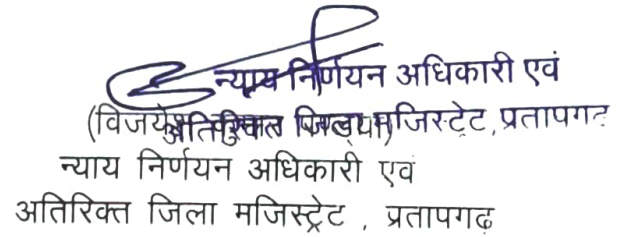 न्याय निर्णयन अधिकारी एवं
(विजय अतिरिक्त जिला मजिस्ट्रेट, प्रतापगढ़
न्याय निर्णयन अधिकारी एवं
अतिरिक्त जिला मजिस्ट्रेट , प्रतापगढ़